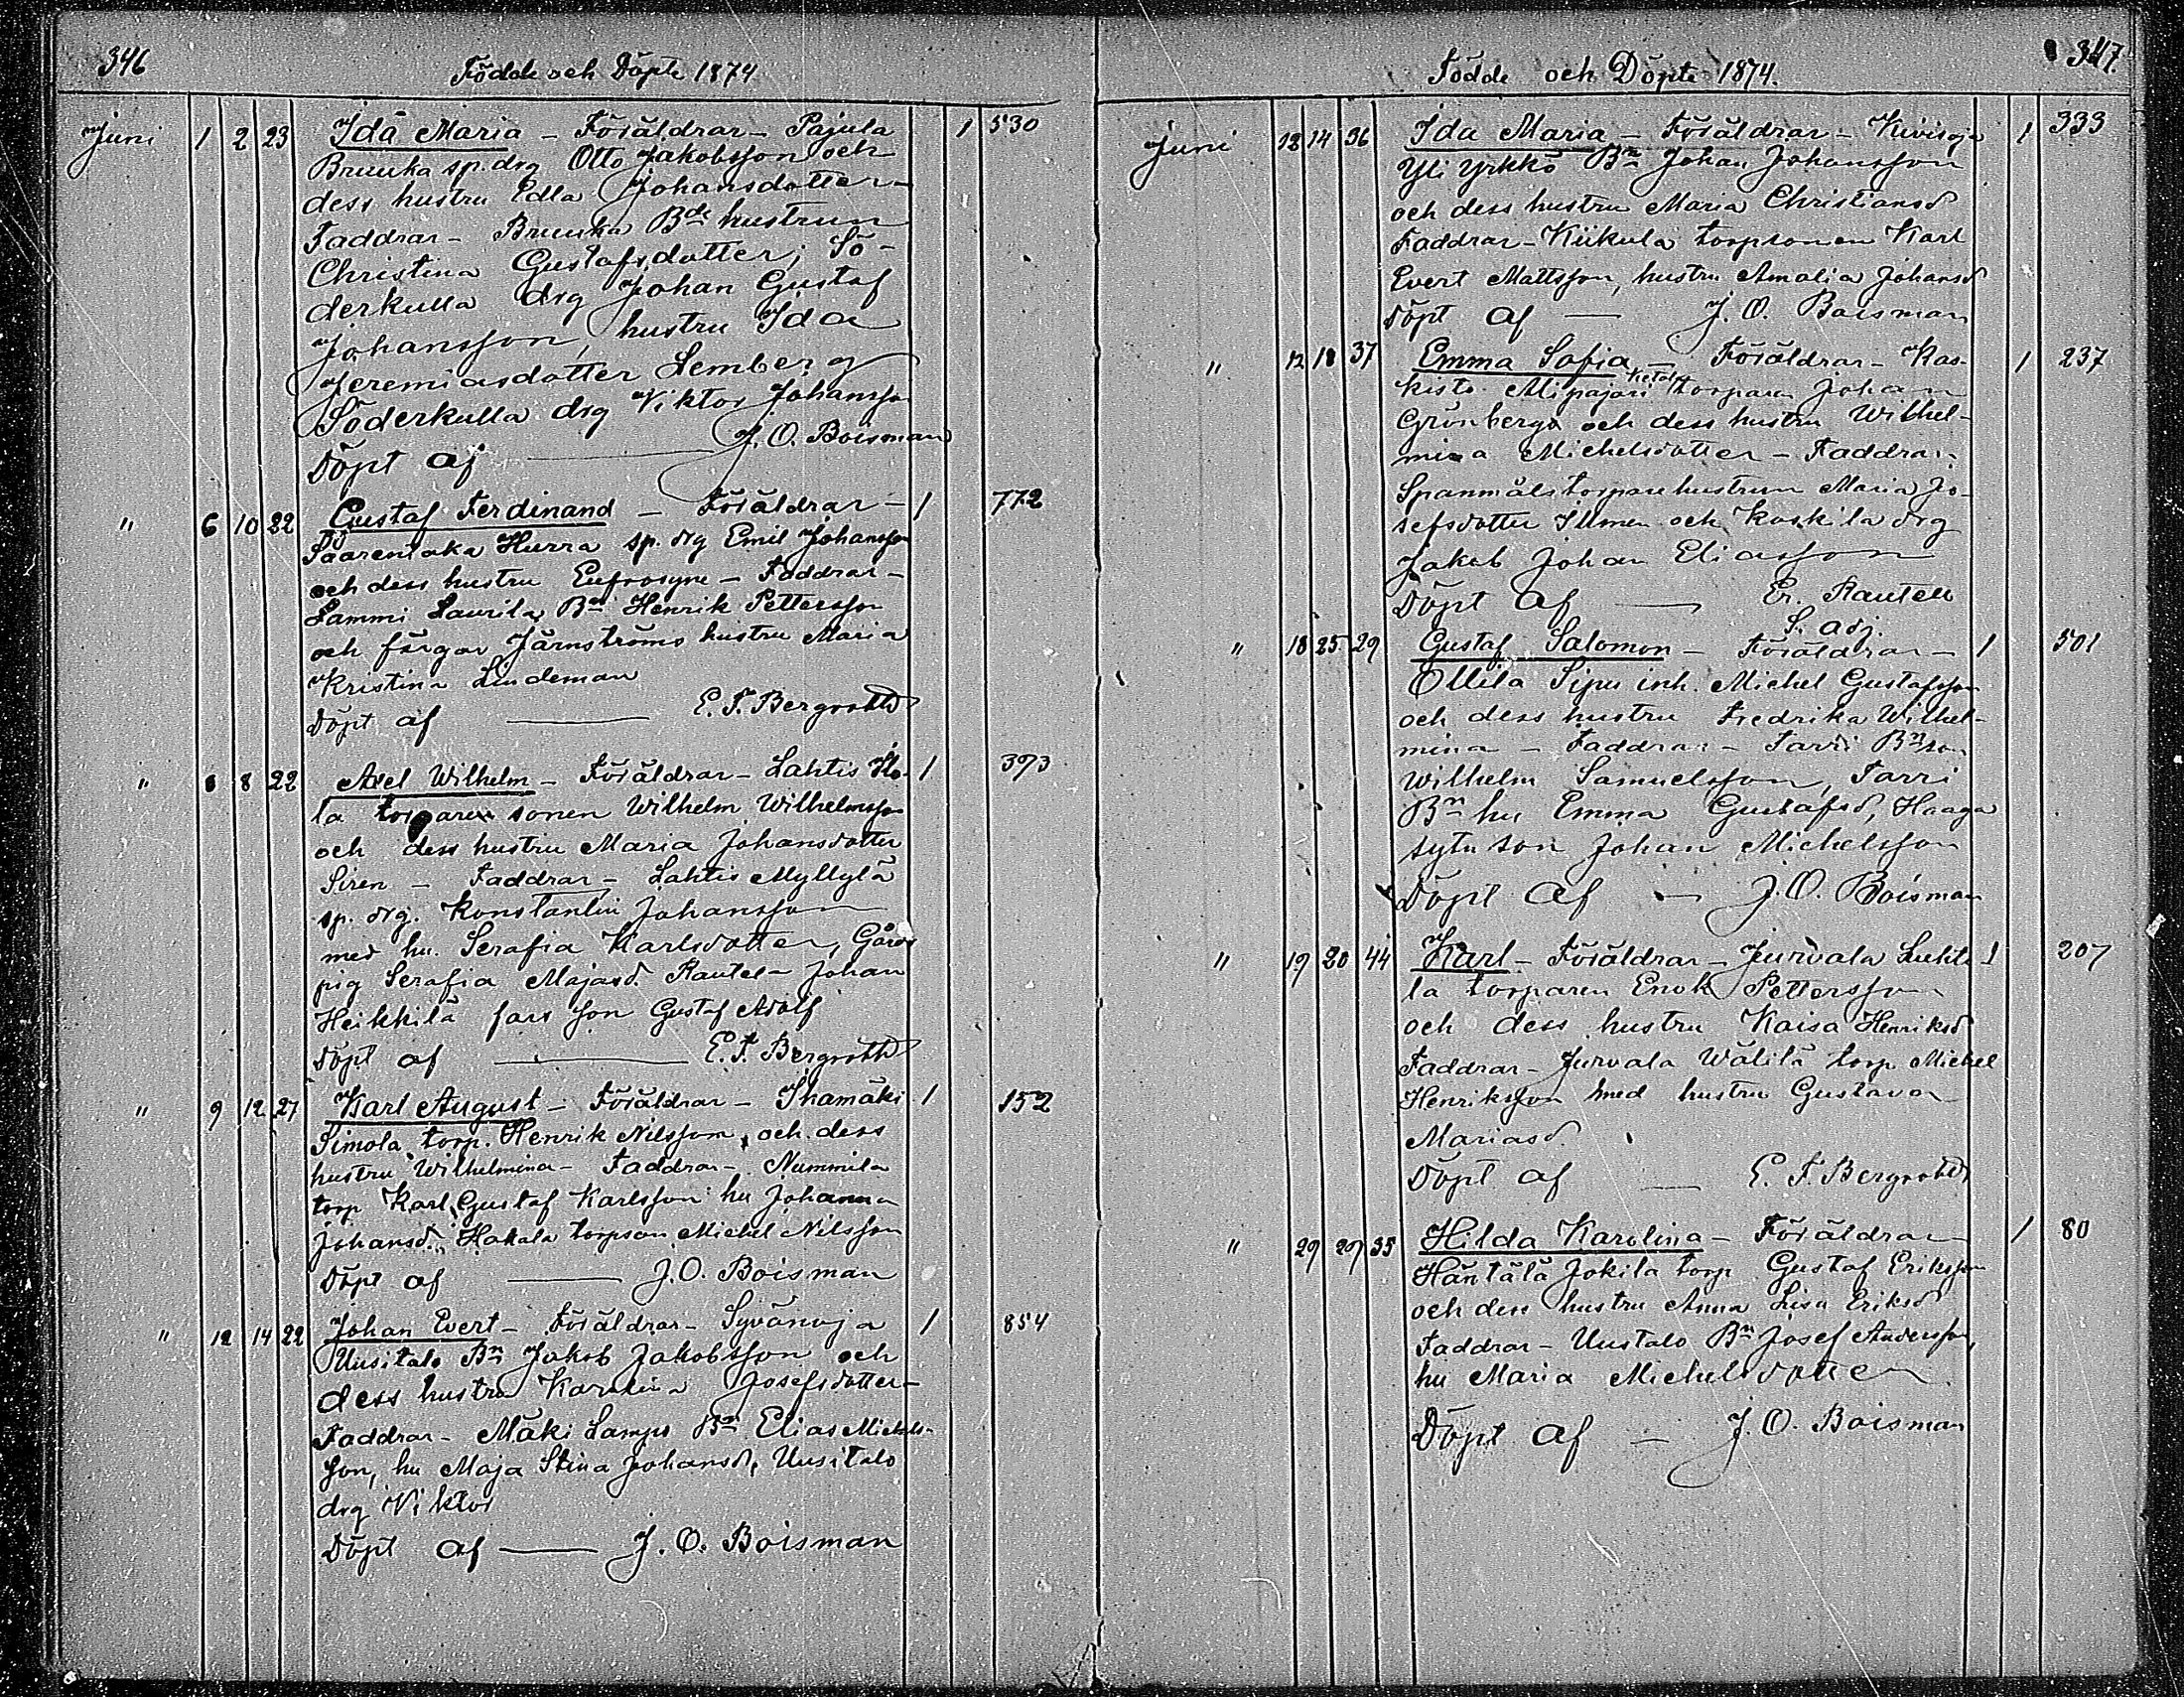 346
Födde och Döpte 1874
Juni 1 2 23 Ida Maria - Föräldrar - Pajula 1 530
Bruuka sp. drg Otto Jakobsson och
dess hustru Edla Johansdotter -
Faddrar - Bruuka Bde hustrun
Christina Gustafsdotter; Sö-
derkulla drg Johan Gustaf
Johansson, hustru Ida
Jeremiasdotter Lemberg
Söderkulla drg Viktor Johansson
Döpt af — J. O. Boisman
" 6 10 22 Gustaf Ferdinand - Föräldrar - 1 772
Saarentaka Hurra sp. drg Emil Johansson
och dess hustru Eufrosyne - Faddrar -
Lammi Laurila Bn Henrik Pettersson
och färgar Järnströms hustru Maria
Kristina Lindeman
Döpt af — E. F. Bergroth
" 6 8 22 Axel Wilhelm - Föräldrar - Lahtis 1 393
la torpare sonen Wilhelm Wilhelmsson
och dess hustru Maria Johansdotter
Siren - Faddrar - Lahtis Myllylä
sp. drg. Konstantin Johansson
med hu. Serafia Karlsdotter, Gårds
pig Serafia Majasd. Rautel - Johan
Heikkilä fars son Gustaf Adolf
Döpt af — E. F. Bergroth
" 9 12 27 Karl August - Föräldrar - Ihamäki 1 152
Simola torp. Henrik Nilsson, och dess
hustru Wilhelmina - Faddrar - Nummila
torp Karl Gustaf Karlsson hu Johanna
Johansd. Hakala torpson Michel Nilsson
Döpt af — J. O. Boisman
" 12 14 22 Johan Evert - Föräldrar - Syvänoja 1 854
Uusitalo Bn Jakob Jakobsson och
dess hustru Karolina Josefsdotter -
Faddrar - Mäki Lamps Bn Elias Michels-
son, hu Maja Stina Johansd, Uusitalo
drg Viktor
Döpt af — J. O. Boisman
347.
Födde och Döpte 1874.
Juni 12 14 36 Ida Maria - Föräldrar - Kivisoja 1 333
Yli Yrkkö Bn Johan Johansson
och dess hustru Maria Christiansd
Faddrar - Kiikula torpsonen Karl
Evert Mattsson, hustru Amalia Johansd
Döpt af — J. O. Boisman
" 12 18 37 Emma Sofia - Föräldrar - Kas- 1 237
kisto Alipajari torparen Johan
Grönberg och dess hustru Wilhel-
mina Michelsdotter - Faddrar -
Spanmåls torpare hustrun Maria Jo-
sefsdotter Ilmen och Koskila drg
Jakob Johan Eliasson
Döpt af — Er. Rautell
S. adj.
" 18 25 29 Gustaf Salomon - Föräldrar - 1 501
Ollila Sipu inh. Michel Gustafsson
och dess hustru Fredrika Wilhel-
mina - Faddrar - Tarri Bnson
Wilhelm Samuelsson, Tarri
Bn hu Emma Gustafsd, Haaga
sytn son Johan Michelsson
Döpt af — J. O. Boisman
" 19 20 44 Karl - Föräldrar - Jurvala Luhti- 1 207
la torparen Enok Pettersson
och dess hustru Kaisa Henriksd
Faddrar - Jurvala Wälilä torp Michel
Henriksson med hustru Gustava
Mariasd.
Döpt af — E. F. Bergroth
" 29 29 35 Hilda Karolina - Föräldrar - 1 80
Häntälä Jokila torp Gustaf Eriksson
och dess hustru Anna Lisa Eriksd
Faddrar - Uustalo Bn Josef Andersson,
hu Maria Michelsdotter
Döpt af — J. O. Boisman